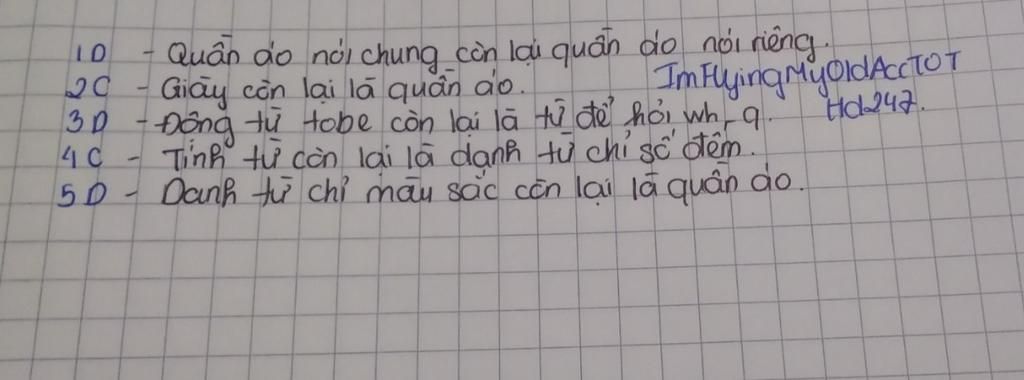 1D - Quần áo nói chung còn lại quần áo nói riêng.
2C - Giày còn lại là quần áo. ImFlyingMyOldAccTOT
3D - Động từ tobe còn lại là từ để hỏi wh_q. Hd247.
4C - Tính từ còn lại là danh từ chỉ số đếm.
5D - Danh từ chỉ màu sắc còn lại là quần áo.